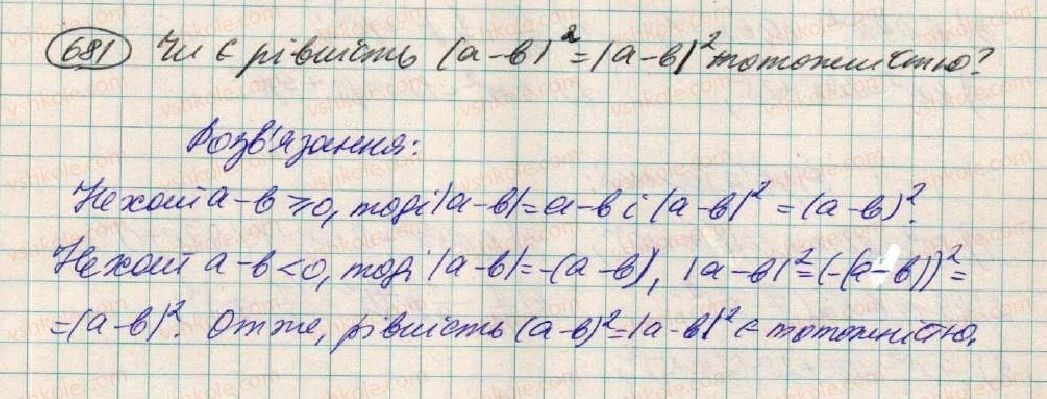 681 Чи є рівність (a-в)²=|a-в|² тотожністю?
Розв'язання:
Нехай a-в≥0, тоді |a-в|=a-в і |a-в|²=(a-в)².
Нехай a-в<0, тоді |a-в|=-(a-в), |a-в|²=(-(a-в))²=
=(a-в)². Отже, рівність (a-в)²=|a-в|² є тотожністю.